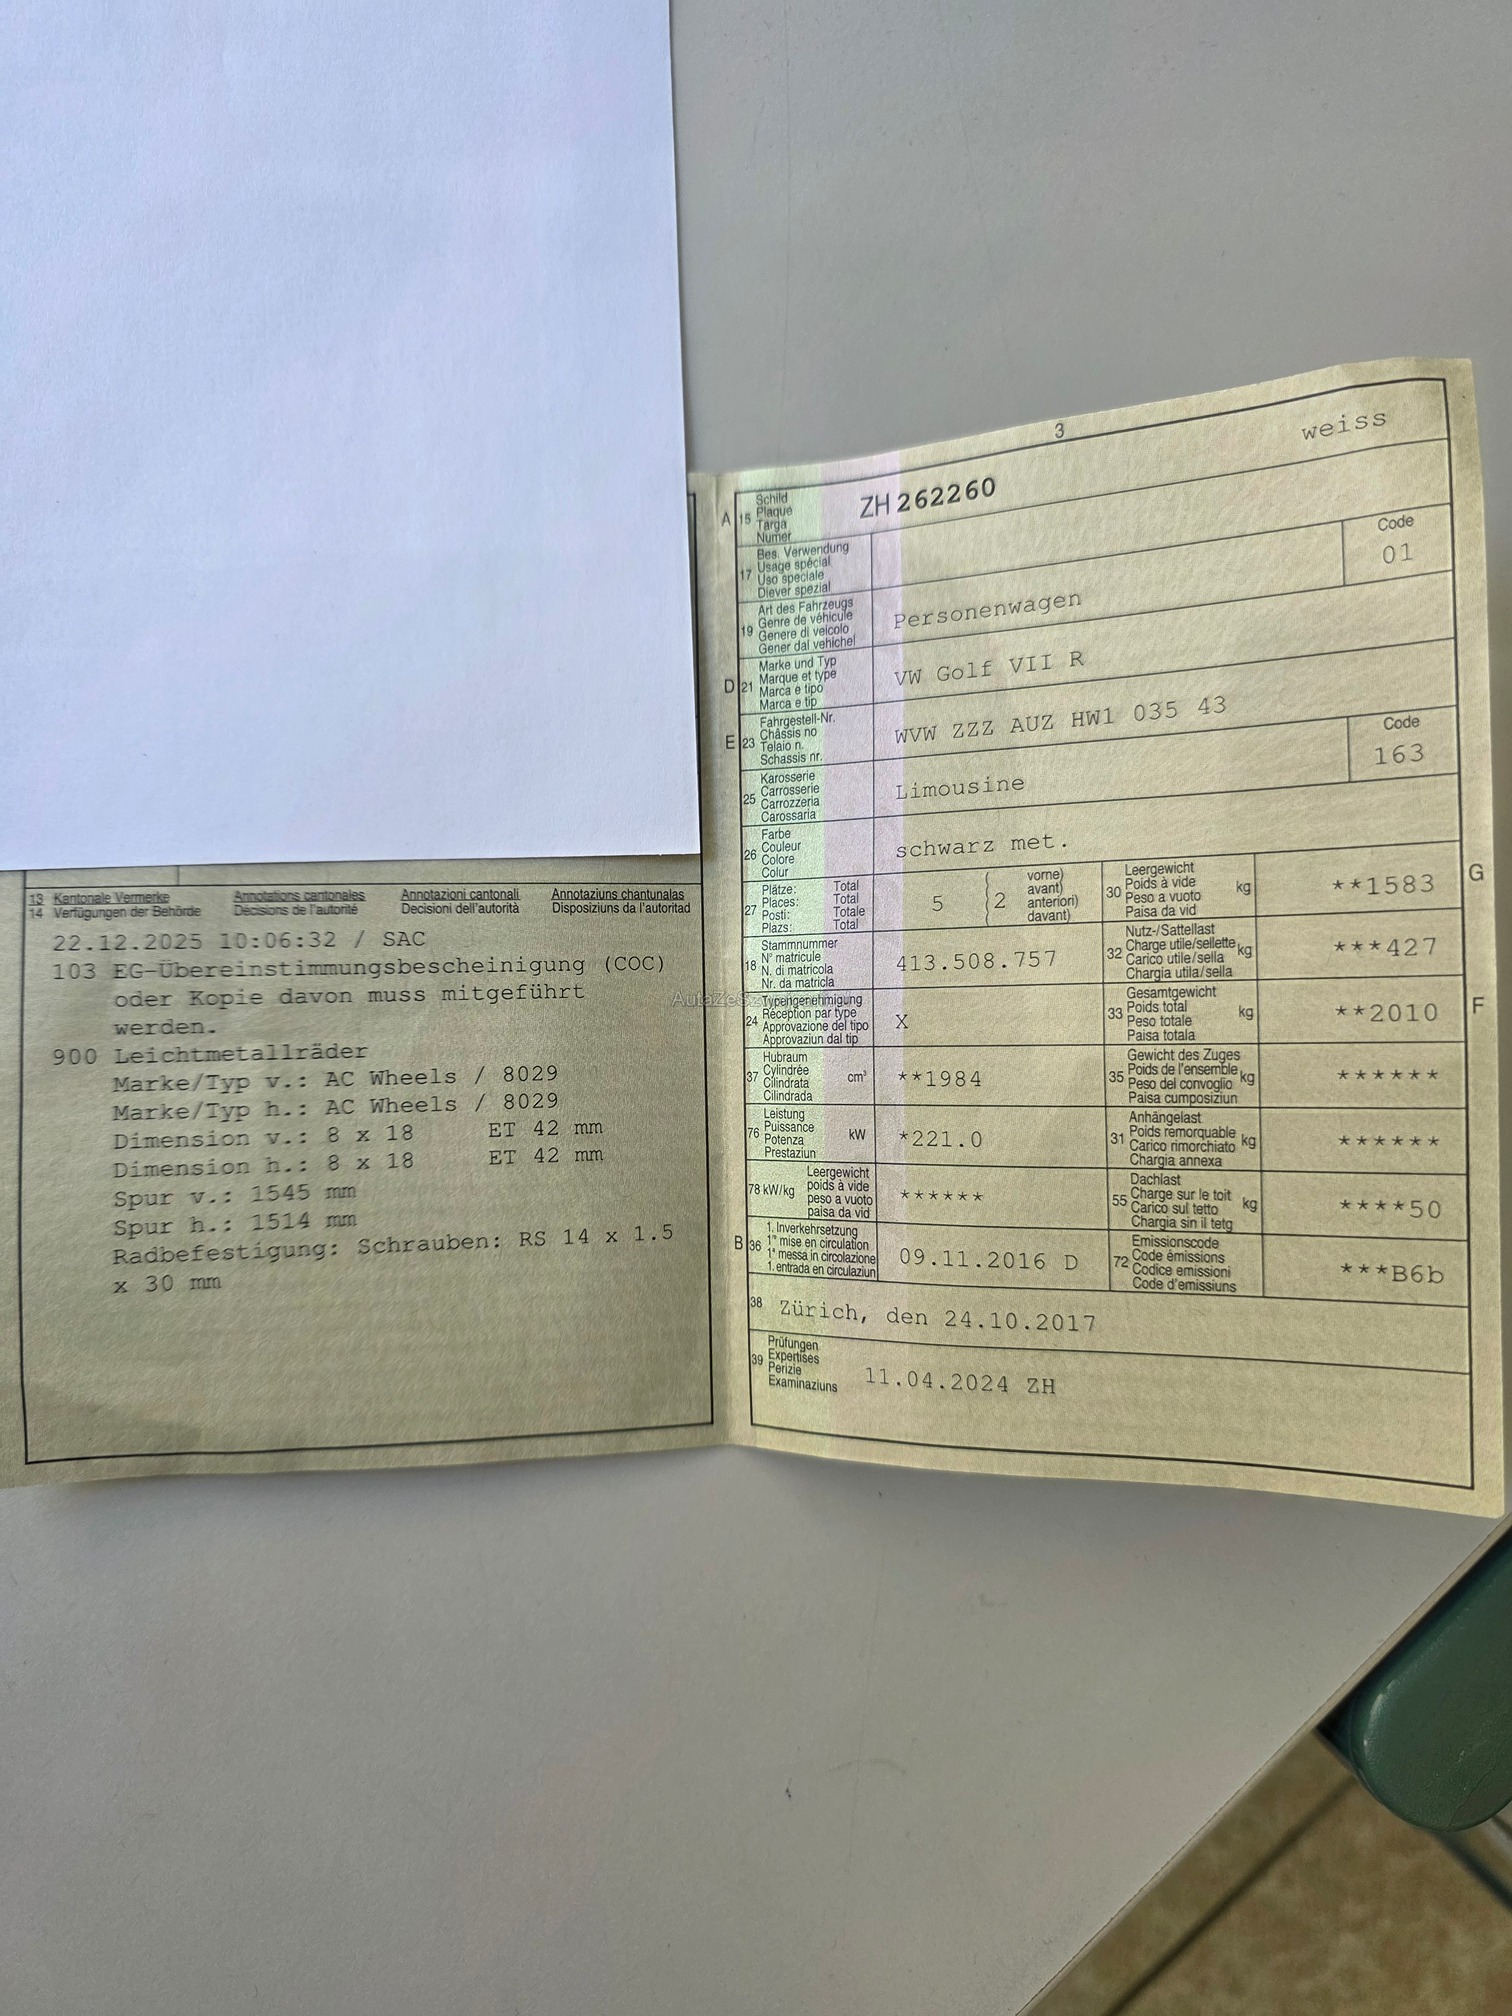 13 Kantonale Vermerke Annotations cantonales Annotazioni cantonali Annotaziuns chantunalas
14 Verfügungen der Behörde Décisions de l'autorité Decisioni dell'autorità Disposiziuns da l'autoritad
22.12.2025 10:06:32 / SAC
103 EG-Übereinstimmungsbescheinigung (COC)
oder Kopie davon muss mitgeführt
werden.
900 Leichtmetallräder
Marke/Typ v.: AC Wheels / 8029
Marke/Typ h.: AC Wheels / 8029
Dimension v.: 8 x 18 ET 42 mm
Dimension h.: 8 x 18 ET 42 mm
Spur v.: 1545 mm
Spur h.: 1514 mm
Radbefestigung: Schrauben: RS 14 x 1.5
x 30 mm
3
weiss
A 15 Schild
Plaque
Targa
Numer
ZH 262260
17 Bes. Verwendung
Usage spécial
Uso speciale
Diever spezial
Code
01
19 Art des Fahrzeugs
Genre de véhicule
Genere di veicolo
Gener dal vehichel
Personenwagen
D 21 Marke und Typ
Marque et type
Marca e tipo
Marca e tip
VW Golf VII R
E 23 Fahrgestell-Nr.
Châssis no
Telaio n.
Schassis nr.
WVW ZZZ AUZ HW1 035 43
25 Karosserie
Carrosserie
Carrozzeria
Carossaria
Limousine
Code
163
26 Farbe
Couleur
Colore
Colur
schwarz met.
27 Plätze: Total
Places: Total
Posti: Totale
Plazs: Total
5 2
vorne)
avant)
anteriori)
davant)
30 Leergewicht
Poids à vide kg
Peso a vuoto
Paisa da vid
**1583
G
18 Stammnummer
N° matricule
N. di matricola
Nr. da matricla
413.508.757
32 Nutz-/Sattellast
Charge utile/sellette kg
Carico utile/sella
Chargia utila/sella
***427
24 Typengenehmigung
Réception par type
Approvazione del tipo
Approvaziun dal tip
X
33 Gesamtgewicht
Poids total kg
Peso totale
Paisa totala
**2010
F
37 Hubraum
Cylindrée cm³
Cilindrata
Cilindrada
**1984
35 Gewicht des Zuges
Poids de l'ensemble kg
Peso del convoglio
Paisa cumposiziun
******
76 Leistung
Puissance kW
Potenza
Prestaziun
*221.0
31 Anhängelast
Poids remorquable kg
Carico rimorchiato
Chargia annexa
******
78 kW/kg Leergewicht
poids à vide
peso a vuoto
paisa da vid
******
55 Dachlast
Charge sur le toit kg
Carico sul tetto
Chargia sin il tetg
****50
B 36 1. Inverkehrsetzung
1re mise en circulation
1a messa in circolazione
1. entrada en circulaziun
09.11.2016 D
72 Emissionscode
Code émissions
Codice emissioni
Code d'emissiuns
***B6b
38 Zürich, den 24.10.2017
39 Prüfungen
Expertises
Perizie
Examinaziuns
11.04.2024 ZH